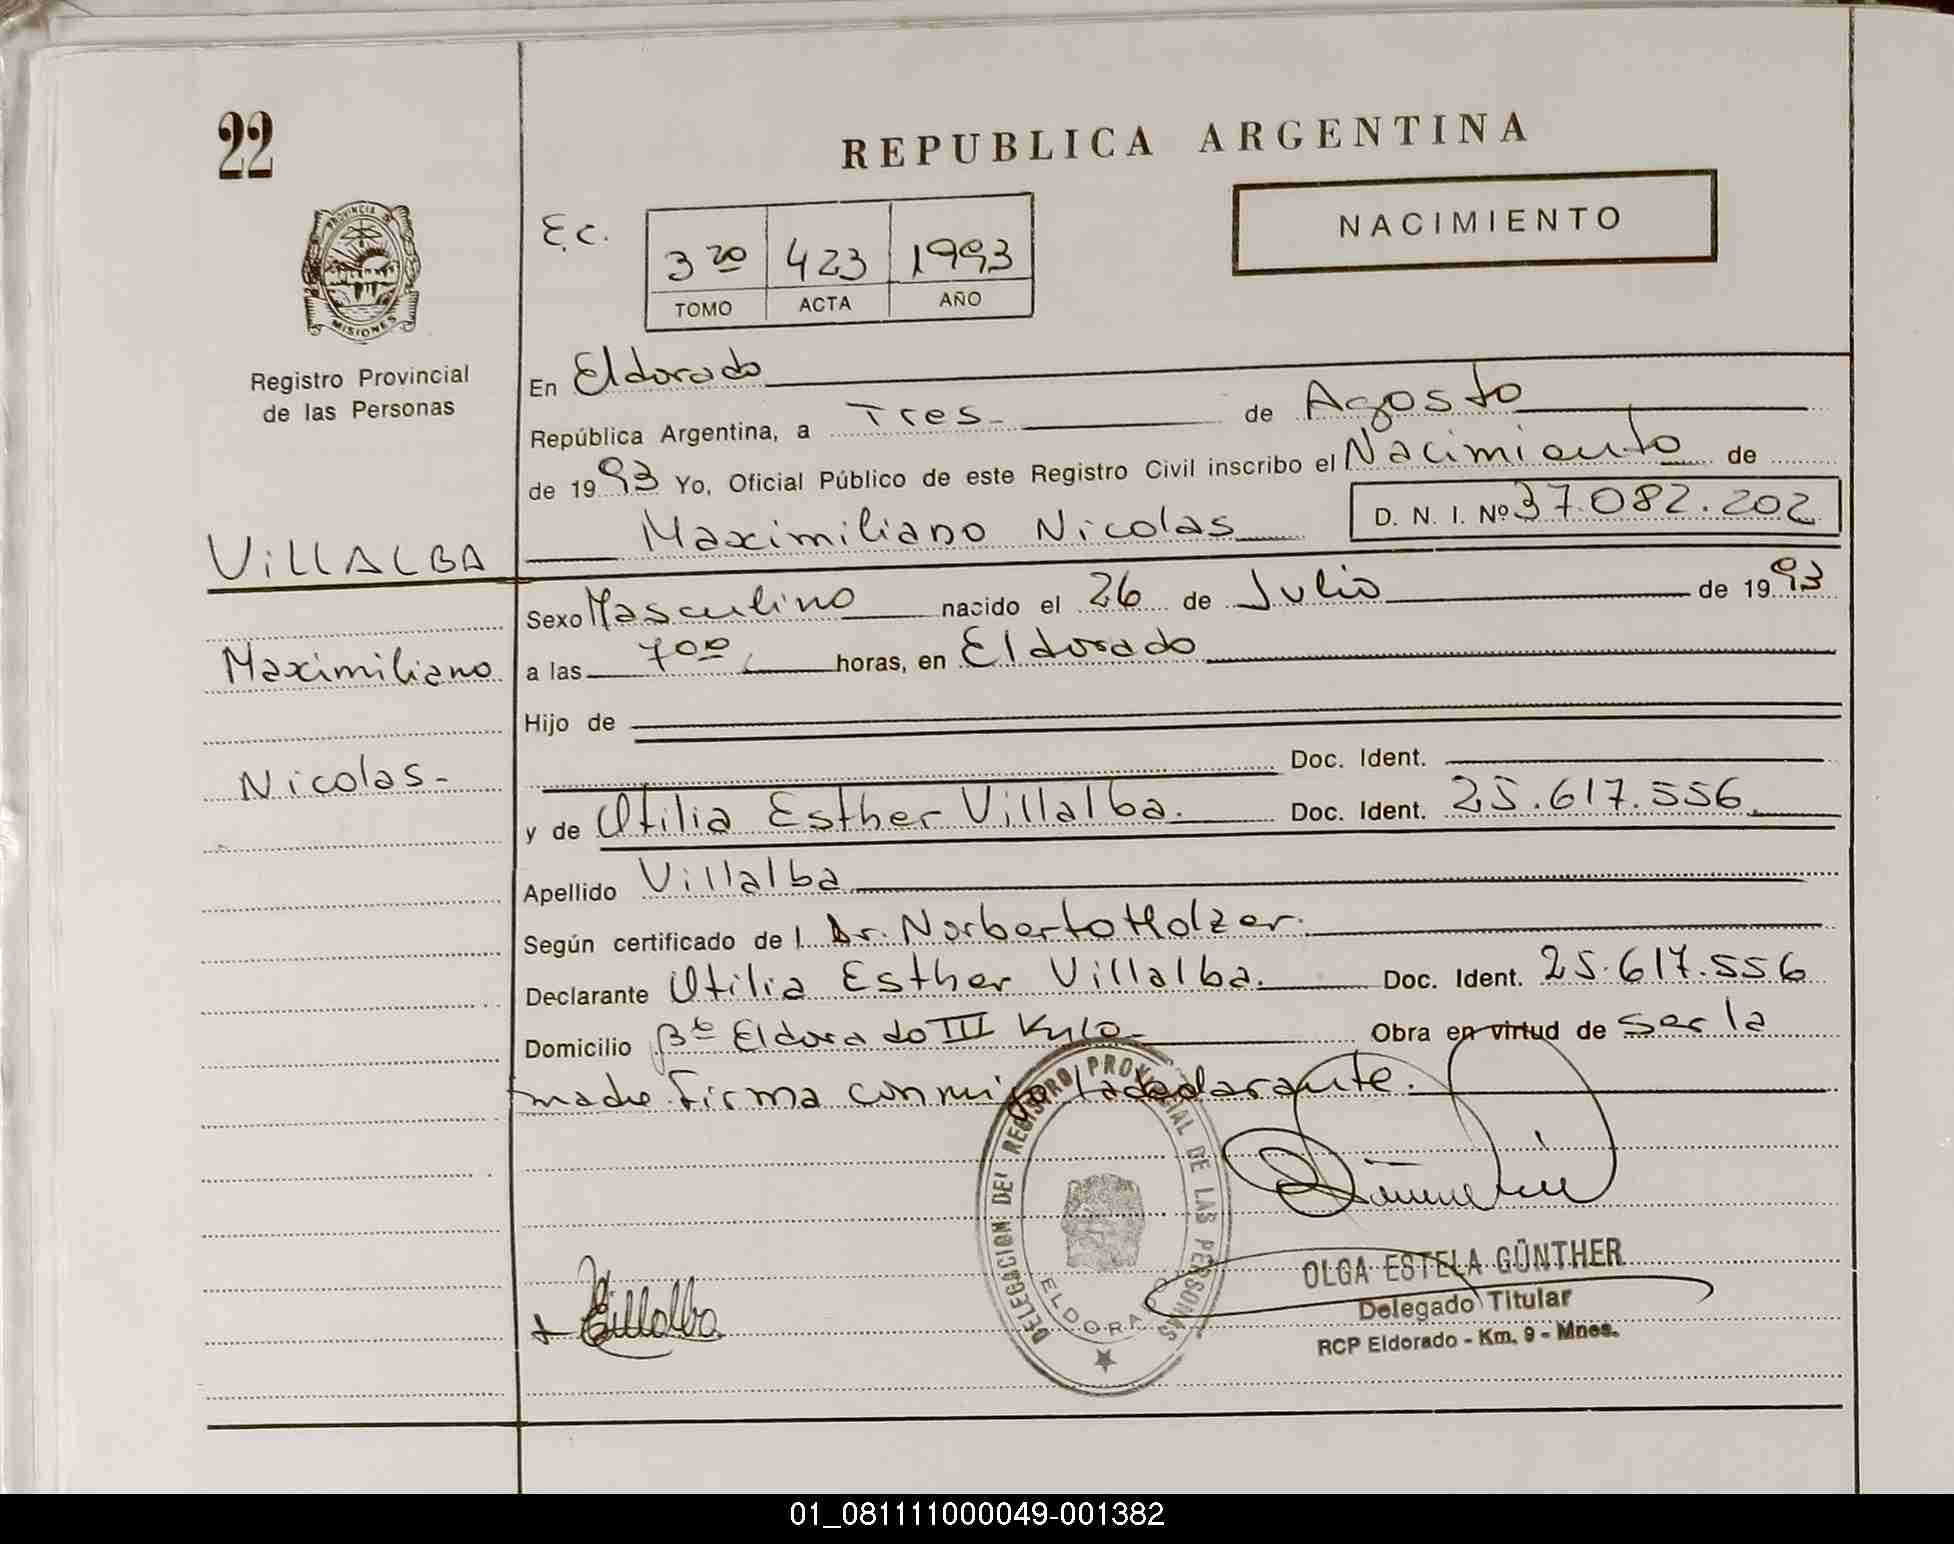 22
REPUBLICA ARGENTINA
PROVINCIA D
MISIONES
Registro Provincial
de las Personas
E.C.
3 ro 423 1993
TOMO ACTA AÑO
NACIMIENTO
En Eldorado
República Argentina, a Tres de Agosto
de 1993 Yo, Oficial Público de este Registro Civil inscribo el Nacimiento de
Maximiliano Nicolas D. N. I. Nº 37.082.202
VILLALBA
Sexo Masculino nacido el 26 de Julio de 1993
Maximiliano
a las 7 00 horas, en Eldorado
Hijo de
Nicolas-
Doc. Ident.
y de Otilia Esther Villalba. Doc. Ident. 25.617.556
Apellido Villalba
Según certificado de l Dr. Norberto Holzer.
Declarante Otilia Esther Villalba. Doc. Ident. 25.617.556
Domicilio Bº Eldorado III Obra en virtud de ser la
madre Firma conmigo la declarante.
DELEGACION DEL REGISTRO PROVINCIAL DE LAS PERSONAS
ELDORADO
Villalba
OLGA ESTELA GÜNTHER
Delegado Titular
RCP Eldorado - Km. 9 - Mnes.
01_081111000049-001382